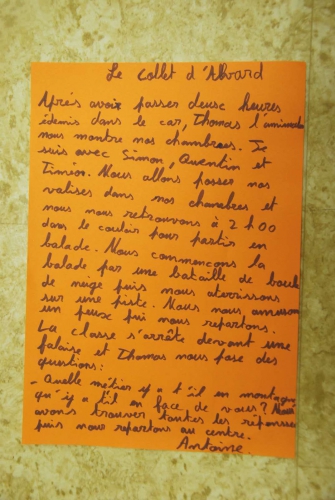 Le collet d'Allvard
Aprés avoir passer deuse heures
édemis dans le car, Thomas l'animate
nous montre nos chambres. Je
suis avec Simon, Quentin et
Timéon. Nous allons posser nos
valises dans nos chambres et
nous nous retrouvons à 2 h 00
dans le couloir pour partir en
balade. Nous commencons la
balade par une bataille de boule
de neige puis nous aterrissons
sur une piste. Nous nous amuson
un peux pui nous repartons.
La classe s'arrête devant une
falaise et Thomas nous pose des
questions:
- Quelle métier y a t'il en montagne
qu'y a t'il en face de vous? Nous
avons trouver toutes les réponses
puis nous repartons au centre.
Antoine